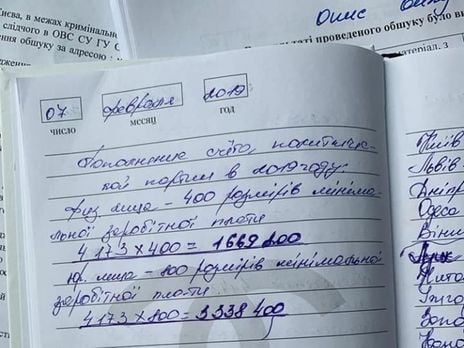 Києва, в межах криміналь
слідчого в ОВС СУ ГУ
ення обшуку за адресою
Опис
таті проведеного обшуку було ви
матеріал, з
07
февраля
2019
число
месяц
год
Пополнение счёта политичес-
кой партии в 2019 году:
физ лица – 400 розмірів мініма-
льної заробітної плати
4173 × 400 = 1669 200
юр. лица – 800 розмірів мінімальної
заробітної плати
4173 × 800 = 3338 400
Київ
Львів
Дніпр
Одеса
Вінн
Жито
Запо